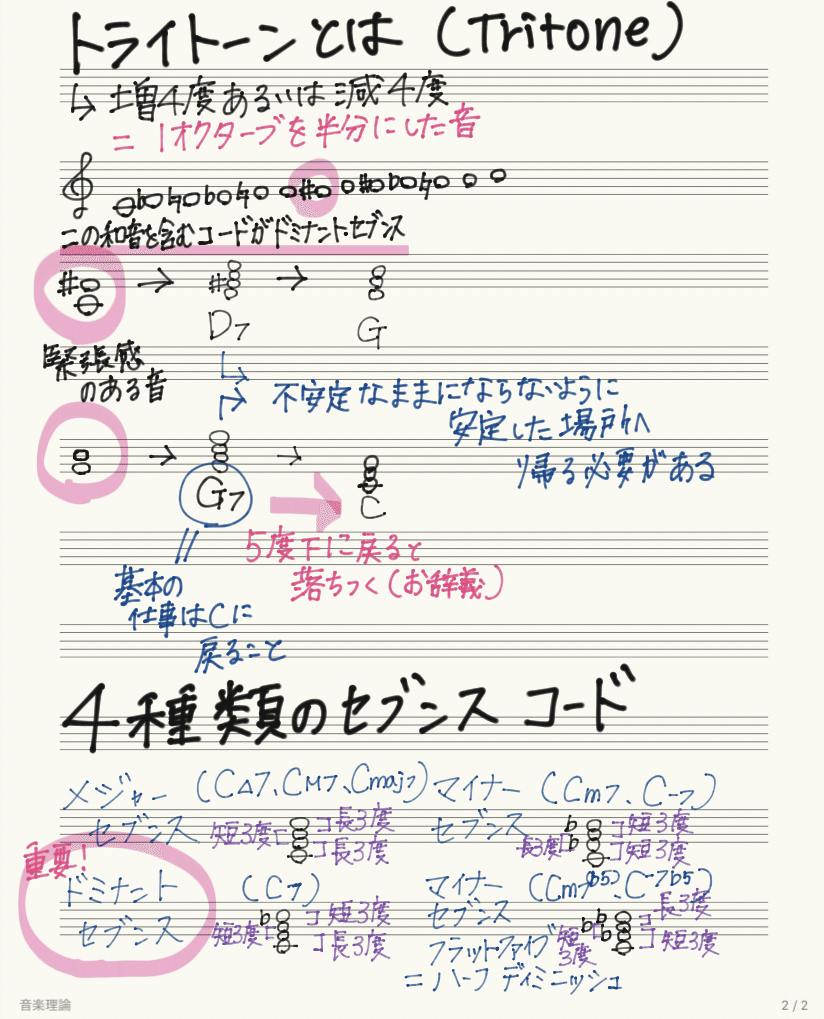 トライトーンとは (Tritone)
↳ 増4度あるいは減4度
= 1オクターブを半分にした音
この和音を含むコードがドミナント・セブンス
D7
G
緊張感
のある音
不安定なままにならないように
安定した場所へ
帰る必要がある
G7
C
5度下に戻ると
落ちつく(お辞義)
基本の
仕事はCに
戻ること
4種類のセブンスコード
メジャー (C△7、CM7、Cmaj7)
セブンス
短3度
長3度
長3度
マイナー (Cm7、C-7)
セブンス
長3度
短3度
短3度
重要!
ドミナント (C7)
セブンス
短3度
短3度
長3度
マイナー (Cm7(b5)、C-7b5)
セブンス
フラット・ファイブ
短
3度
長3度
短3度
= ハーフ ディミニッシュ
音楽理論
2 / 2